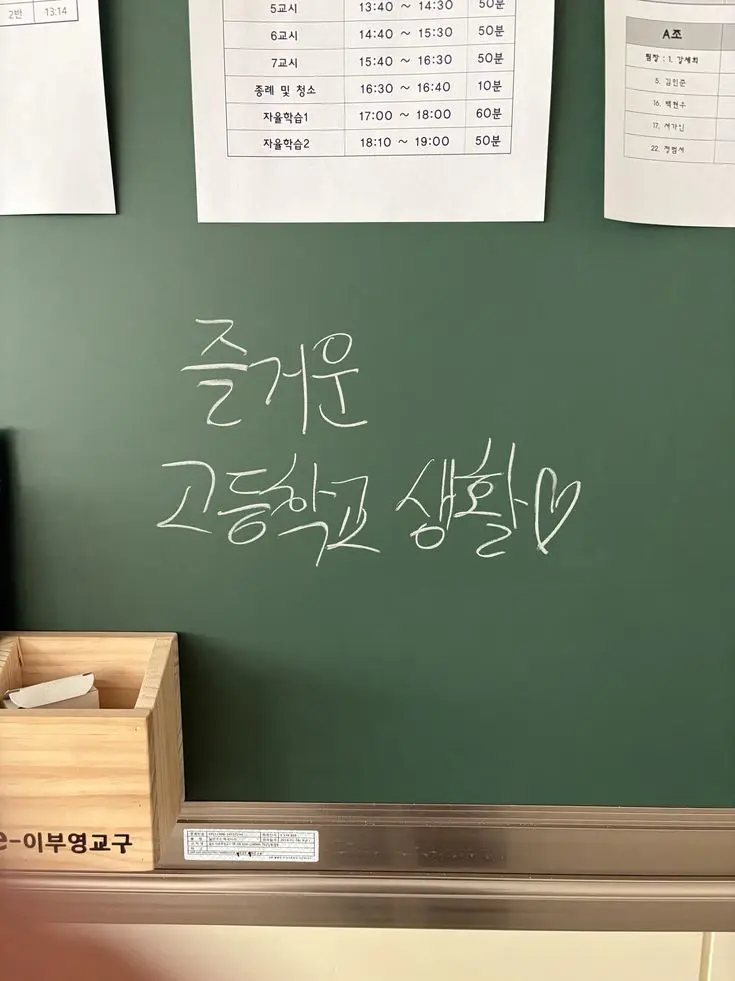 2반 13:14
5교시 13:40 ~ 14:30 50분
6교시 14:40 ~ 15:30 50분
7교시 15:40 ~ 16:30 50분
종례 및 청소 16:30 ~ 16:40 10분
자율학습1 17:00 ~ 18:00 60분
자율학습2 18:10 ~ 19:00 50분
A조
팀장 : 1. 강세희
5. 김민준
16. 백현수
17. 서가인
22. 정범서
즐거운
고등학교 생활♡
e-이부영교구